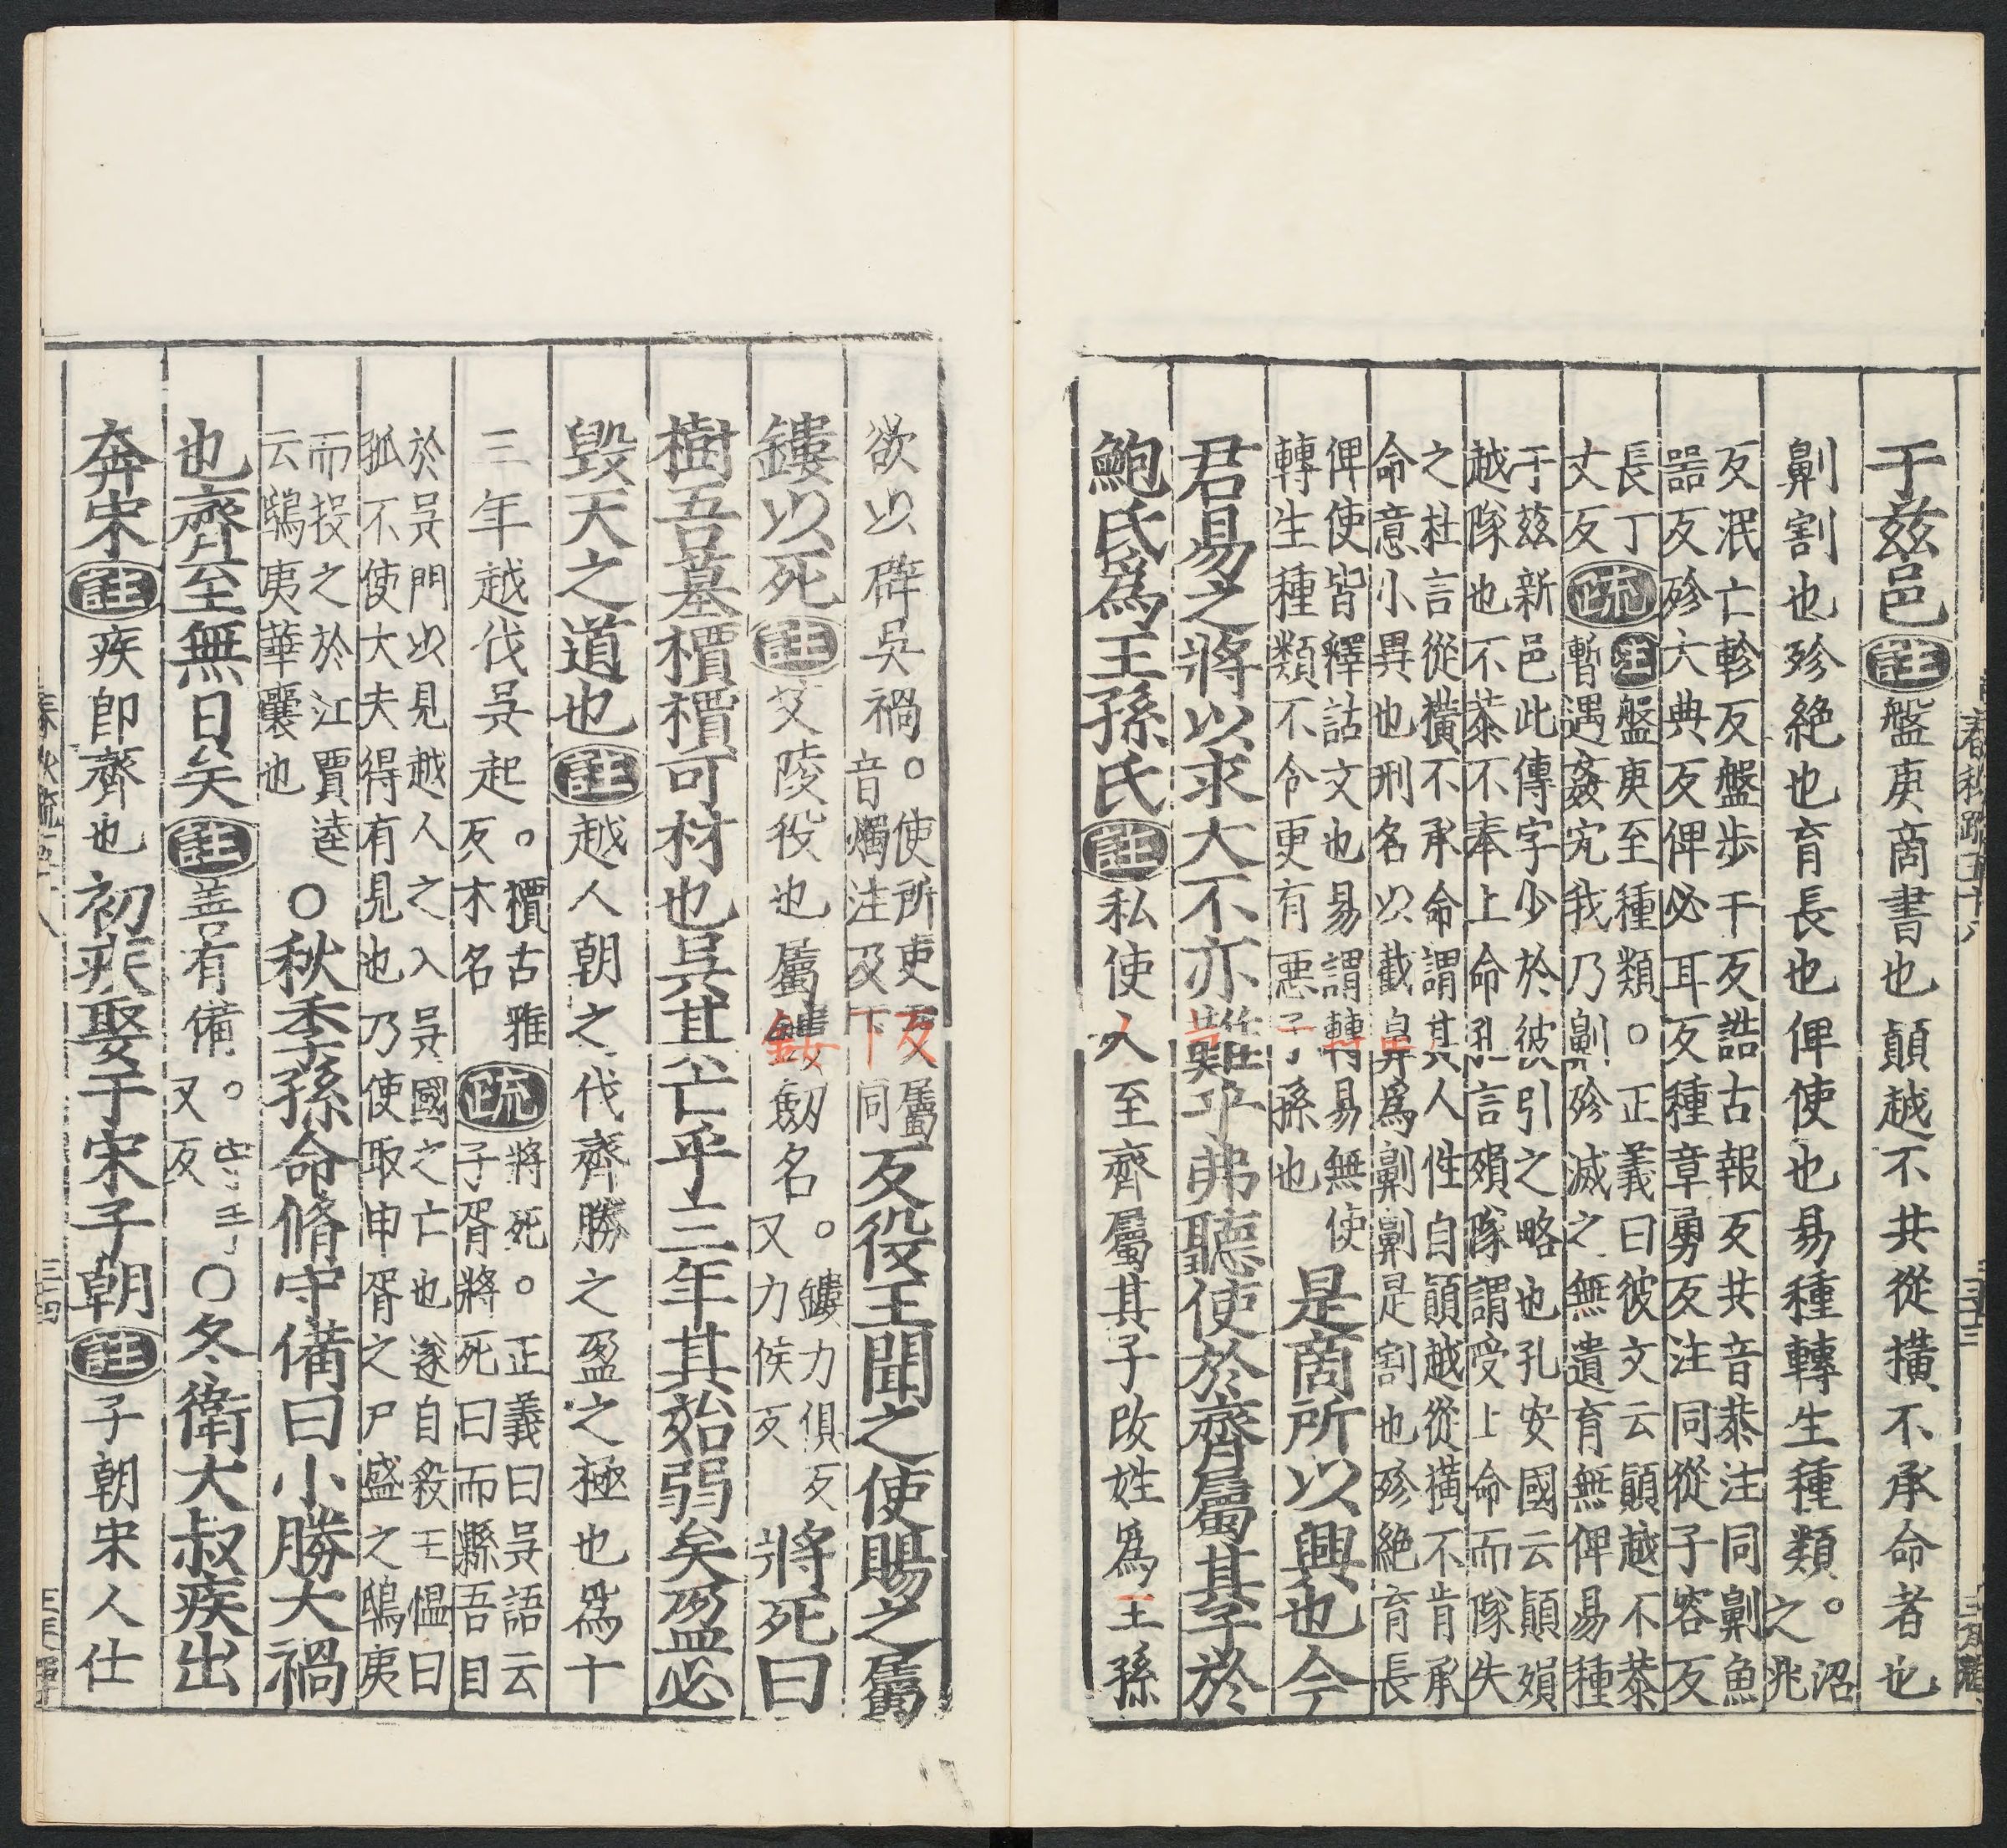 于兹邑註盤庚商書也顛越不共從橫不承命者也
劓割也殄絶也育長也俾使也易種轉生種類。沼之兆
反泯亡軫反盤步干反誥古報反共音恭注同劓魚
噐反殄亠典反俾必耳反種章勇反注同從子容反
長丁
丈反疏註盤庚至種類。正義曰彼文云顛越不恭
暫遇姦宄我乃劓殄滅之無遺育無俾易種
于兹新邑此傳字少於彼引之略也孔安國云顛殞
越隊也不恭不奉上命孔言殞隊謂受上命而隊失
之杜言從橫不承命謂其人性自顛越從橫不肯承
命意小異也刑名以截鼻爲劓劓是割也殄絶育長
俾使皆釋詁文也易謂轉易無使
轉生種類不令更有惡子孫也是商所以興也今
君易之將以求大不亦難乎弗聽使於齊屬其子於
鮑氏爲王孫氏註私使人至齊屬其子改姓爲王孫
欲以辟吳禍。使所吏反屬音燭注及下同反役王聞之使賜之屬
鏤以死註艾陵役也屬鏤劔名。鏤力俱反又力候反將死曰
樹吾墓檟檟可材也吳其亡乎三年其始弱矣盈必
毀天之道也註越人朝之伐齊勝之盈之極也爲十
三年越伐吳起。檟古雅反木名疏將死。正義曰吳語云子胥將死曰而縣吾目
於吳門以見越人之入吳國之亡也遂自殺王愠曰
孤不使大夫得有見也乃使取申胥之尸盛之鴟夷
而投之於江賈逵
云鴟夷革囊也○秋季孫命脩守備曰小勝大禍
也齊至無日矣註善有備。守手又反○冬衛大叔疾出
奔宋註疾卽齊也初疾娶于宋子朝註子朝宋人仕